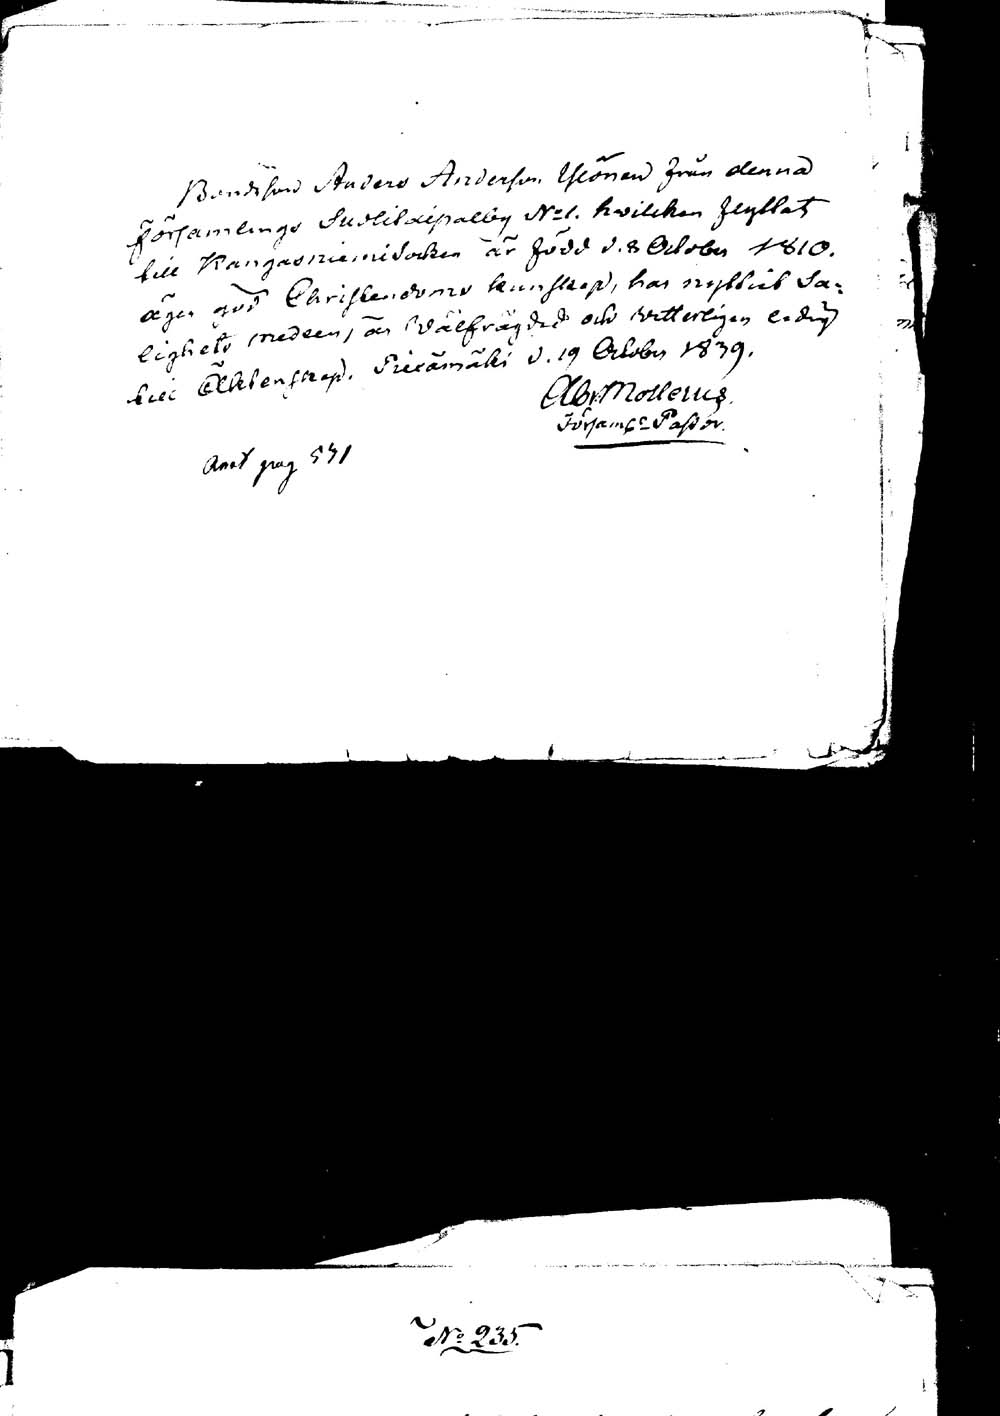 Bondeson Anders Andersson Ylönen från denna
församlings Suolilaipalby No 1. hvilcken flyttat
till Kangasniemi Socken är född d. 8 October 1810.
äger god Christendoms kunskap, har nyttiat Sa-
lighets medlen, är Välfrägdad och vetterligen ledig
till Ächtenskap. Piexämäki d. 19 October 1839.
Abr. Mollerus.
Församls Pastor.
Anot pag 541
No 235.